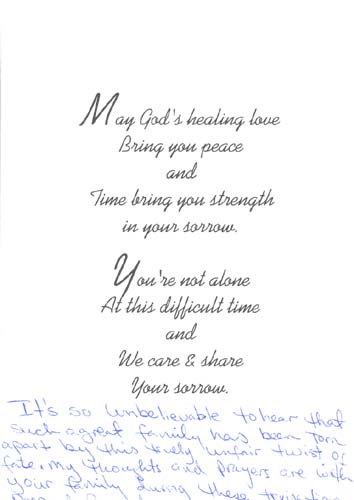 May God's healing love
Bring you peace
and
Time bring you strength
in your sorrow.
You're not alone
At this difficult time
and
We care & share
Your sorrow.
It's so unbelievable to hear that
such a great family has been torn
apart by this truly unfair twist of
fate. my thoughts and prayers are with
your family during these